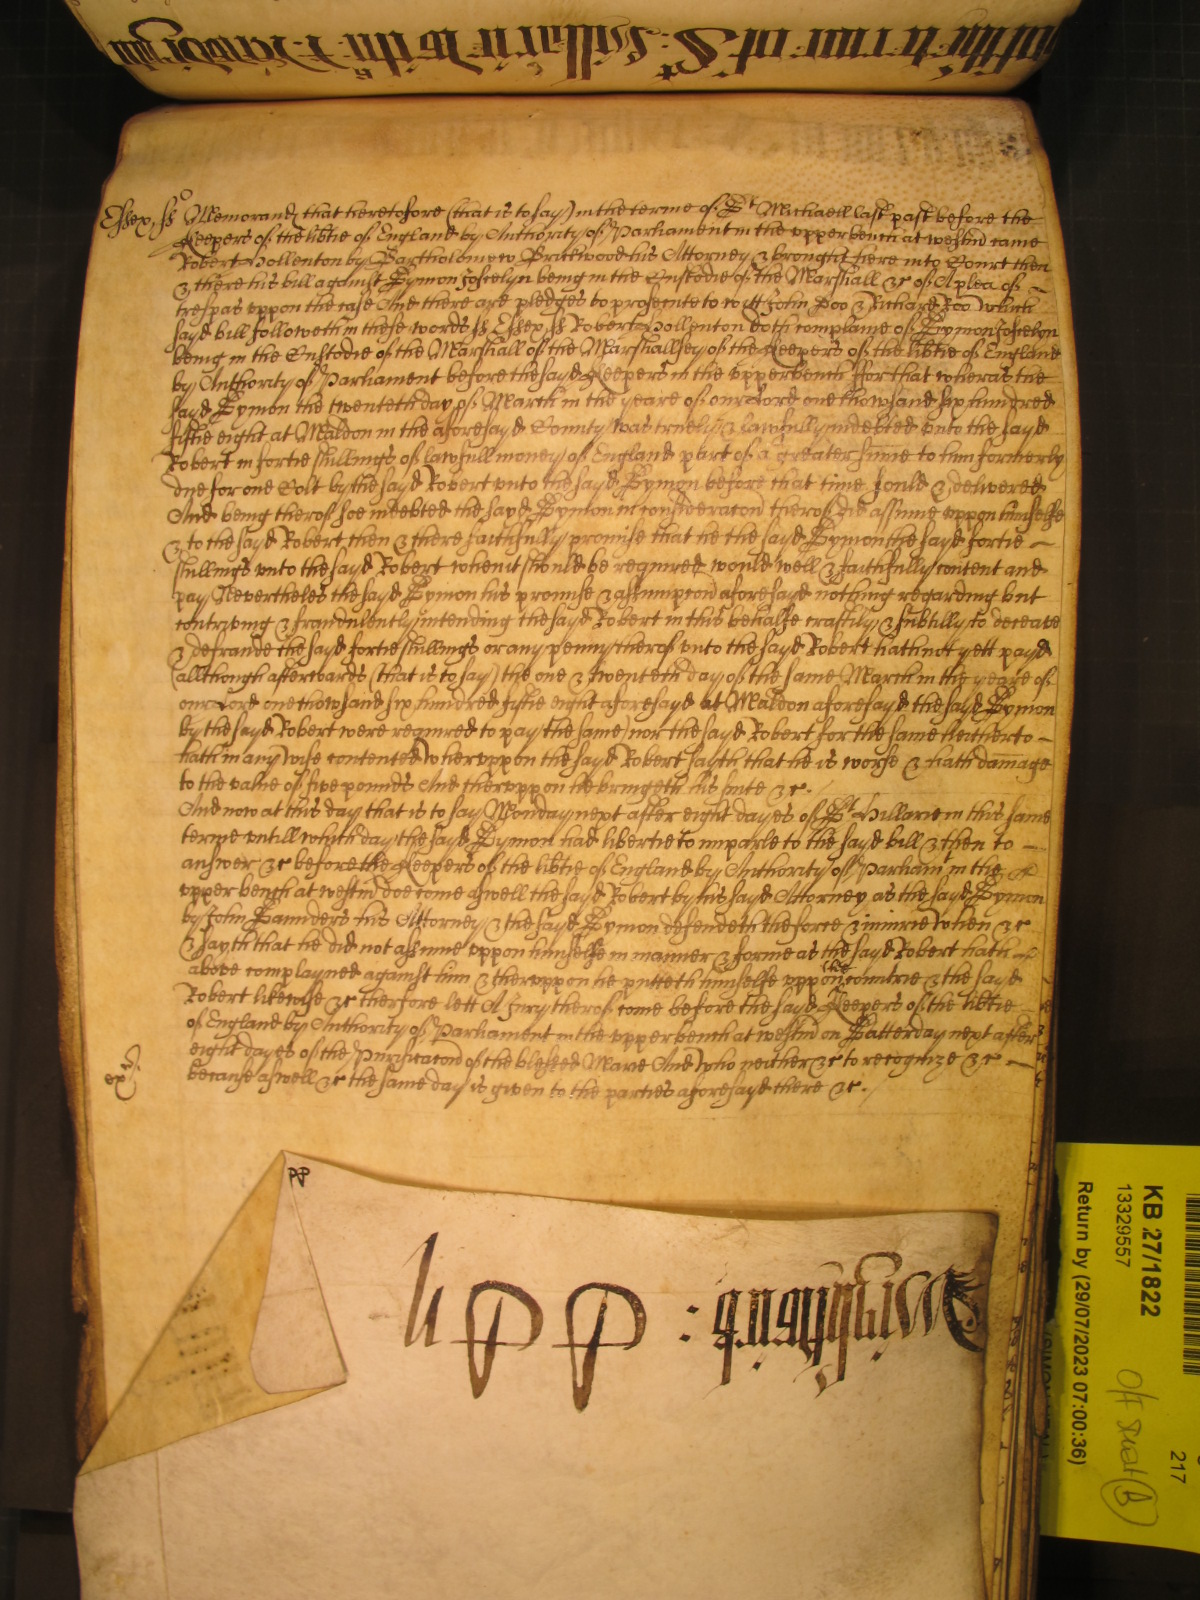 Essex ss Memorand that heretofore (that is to say) in the terme of St Michaell last past before the
Keepers of the libtie of England by Authority of Parliament in the upper bench at westm came
Robert Hollenton by Bartholomew Brickwood his Attorney & brought here into Court then
& there his bill against Symon Joscelyn being in the Custodie of the Marshall &c of A plea of
trespas uppon the case And there are pledges to prosecute to witt John Doo & Richard Roo which
sayd bill followeth in these words ss Essex ss Robert Hollenton doth complaine of Symon Joscelyn
being in the Custodie of the Marshall of the Marshallsey of the Keepers of the libtie of England
by Authority of Parliament before the sayd Keepers in the upper bench ffor that wheras the
sayd Symon the twenteth day of March in the yeare of our Lord one thowsand six hundred
fiftie eight at Maldon in the aforesayd County was truely & lawfully indebted unto the sayd
Robert in fortie shillings of lawfull money of England part of a greater sume to him formerly
due for one Colt by the sayd Robert unto the sayd Symon before that time sould & delivered
And being therof soe indebted the sayd Symon in consideracon therof did assume uppon himselfe
& to the sayd Robert then & there faithfully promise that he the sayd Symon the sayd fortie
shillings unto the sayd Robert when it should be required would well & faithfully content and
pay Nevertheles the sayd Symon his promise & assumpcon aforesayd nothing regarding but
contryving & fraudulently intending the sayd Robert in this behalfe craftily & subtilly to deceave
& defraude the sayd fortie shillings or any penny therof unto the sayd Robert hath not yett payd
(allthough afterwards (that is to say) the one & twenteth day of the same March in the yeare of
our Lord one thowsand six hundred fiftie eight aforesayd at Maldon aforesayd the sayd Symon
by the sayd Robert were required to pay the same) nor the sayd Robert for the same heitherto
hath in any wise contented wheruppon the sayd Robert sayth that he is worse & hath damage
to the value of five pounds And theruppon he bringeth his suite &c.
And now at this day that is to say Monday next after eight dayes of St Hillarie in this same
terme untill which day the sayd Symon had libertie to imparle to the sayd bill & then to
answer &c before the Keepers of the libtie of England by Authority of Parliam in the
upper bench at westm doe come aswell the sayd Robert by his sayd Attorney as the sayd Symon
by John Saunders his Attorney & the sayd Symon defendeth the force & iniurie when &c
& sayth that he did not assume uppon himselfe in manner & forme as the sayd Robert hath
above complayned against him & theruppon he putteth himselfe uppon the countrie & the sayd
Robert likewise &c therfore lett A Jury therof come before the sayd Keepers of the libtie
of England by Authority of Parliament in the upper bench at westm on Satterday next after
eight dayes of the Purificacon of the blessed Marie And who neither &c to recognize &c
because aswell &c the same day is given to the parties aforesayd there &c.
KB 27/1822
13329557
Return by (29/07/2023 07:00:36)
217